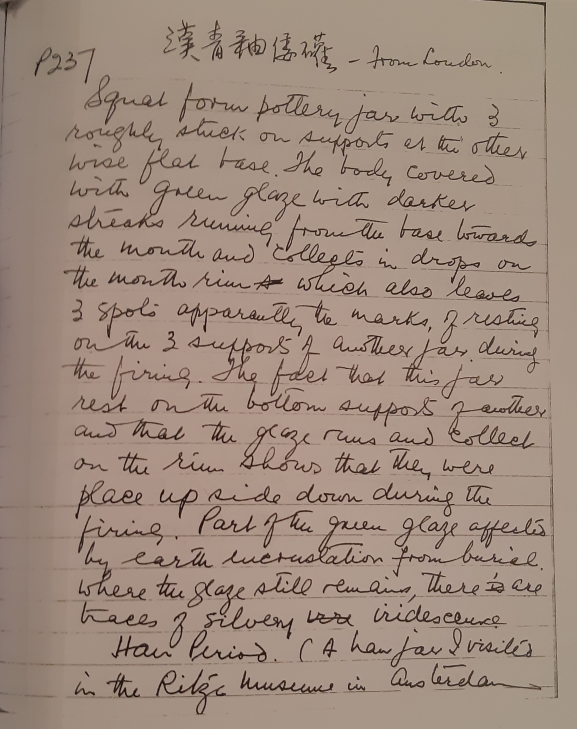 P237
漢青釉矮罐 - from London.
Squat form pottery jar with 3
roughly stuck on supports at the other
wise flat base. The body covered
with green glaze with darker
streaks running from the base towards
the mouth and collects in drops on
the mouth rim which also leaves
3 spots apparantly the marks, of resting
on the 3 supports of another jar during
the firing. The fact that this jar
rest on the bottom supports of another
and that the glaze runs and collect
on the rim shows that they were
place up side down during the
firing. Part of the green glaze affected
by earth encrustation from burial.
where the glaze still remains, there is are
traces of silvery iridescence
Han Period. (A han jar I visited
in the Museum in Amsterdam